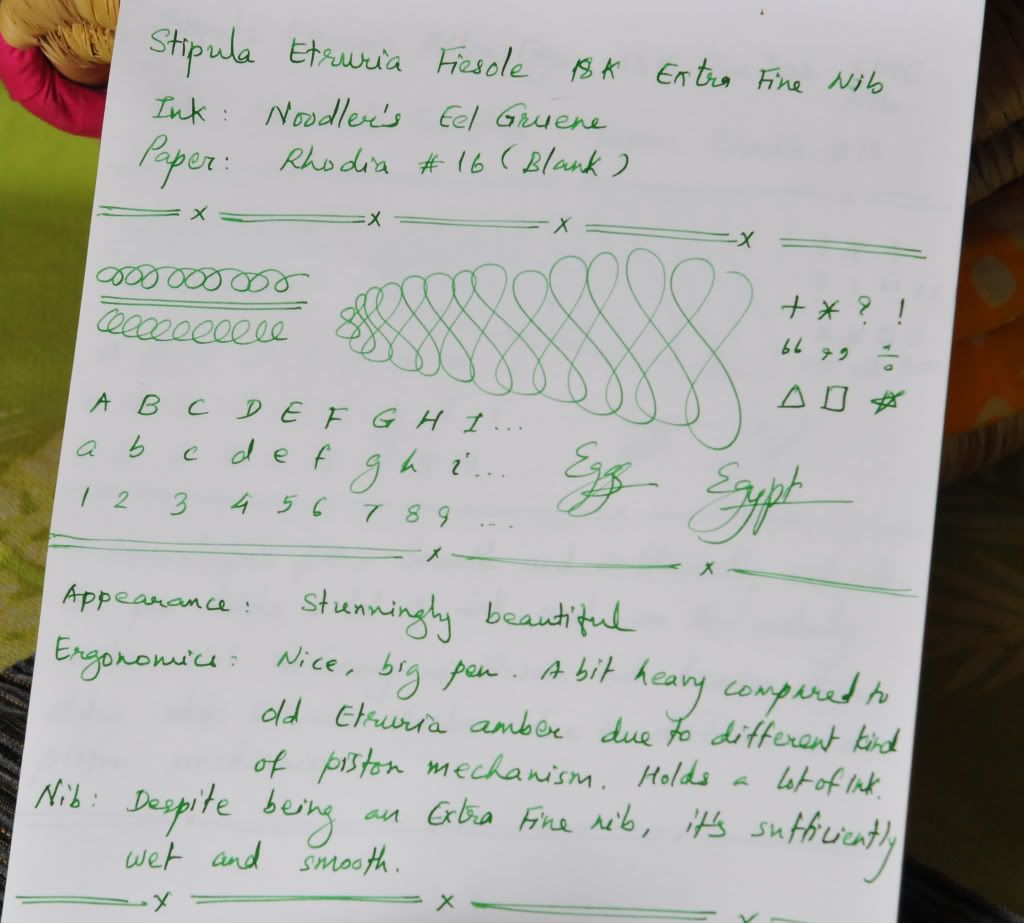 Stipula Etruria Fiesole 18K Extra Fine Nib
Ink: Noodler's Eel Gruene
Paper: Rhodia # 16 (Blank)
= x = x = x = x =
+ * ? !
“ ” ÷
△ □ #
A B C D E F G H I ...
a b c d e f g h i ...
Egg Egypt
1 2 3 4 5 6 7 8 9 ...
= x = x =
Appearance: Stunningly beautiful
Ergonomics: Nice, big pen. A bit heavy compared to
old Etruria amber due to different kind
of piston mechanism. Holds a lot of ink.
Nib: Despite being an Extra Fine nib, it's sufficiently
wet and smooth.
= x = x = x